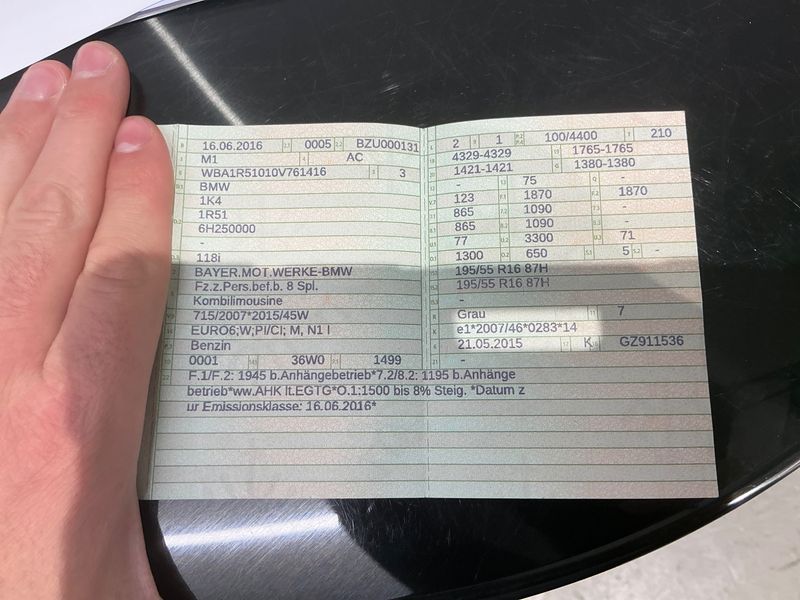 16.06.2016 0005 BZU000131
M1 AC
WBA1R51010V761416 3
BMW
1K4
1R51
6H250000
-
118i
BAYER.MOT.WERKE-BMW
Fz.z.Pers.bef.b. 8 Spl.
Kombilimousine
715/2007*2015/45W
EURO6;W;PI/CI; M, N1 I
Benzin
0001 36W0 1499
F.1/F.2: 1945 b.Anhängebetrieb*7.2/8.2: 1195 b.Anhänge
betrieb*ww.AHK lt.EGTG*O.1:1500 bis 8% Steig. *Datum z
ur Emissionsklasse: 16.06.2016*
2 1 100/4400 210
4329-4329 1765-1765
1421-1421 1380-1380
- 75 -
123 1870 1870
865 1090 -
865 1090 -
77 3300 71
1300 650 5 -
195/55 R16 87H
195/55 R16 87H
-
Grau 7
e1*2007/46*0283*14
21.05.2015 K GZ911536
-